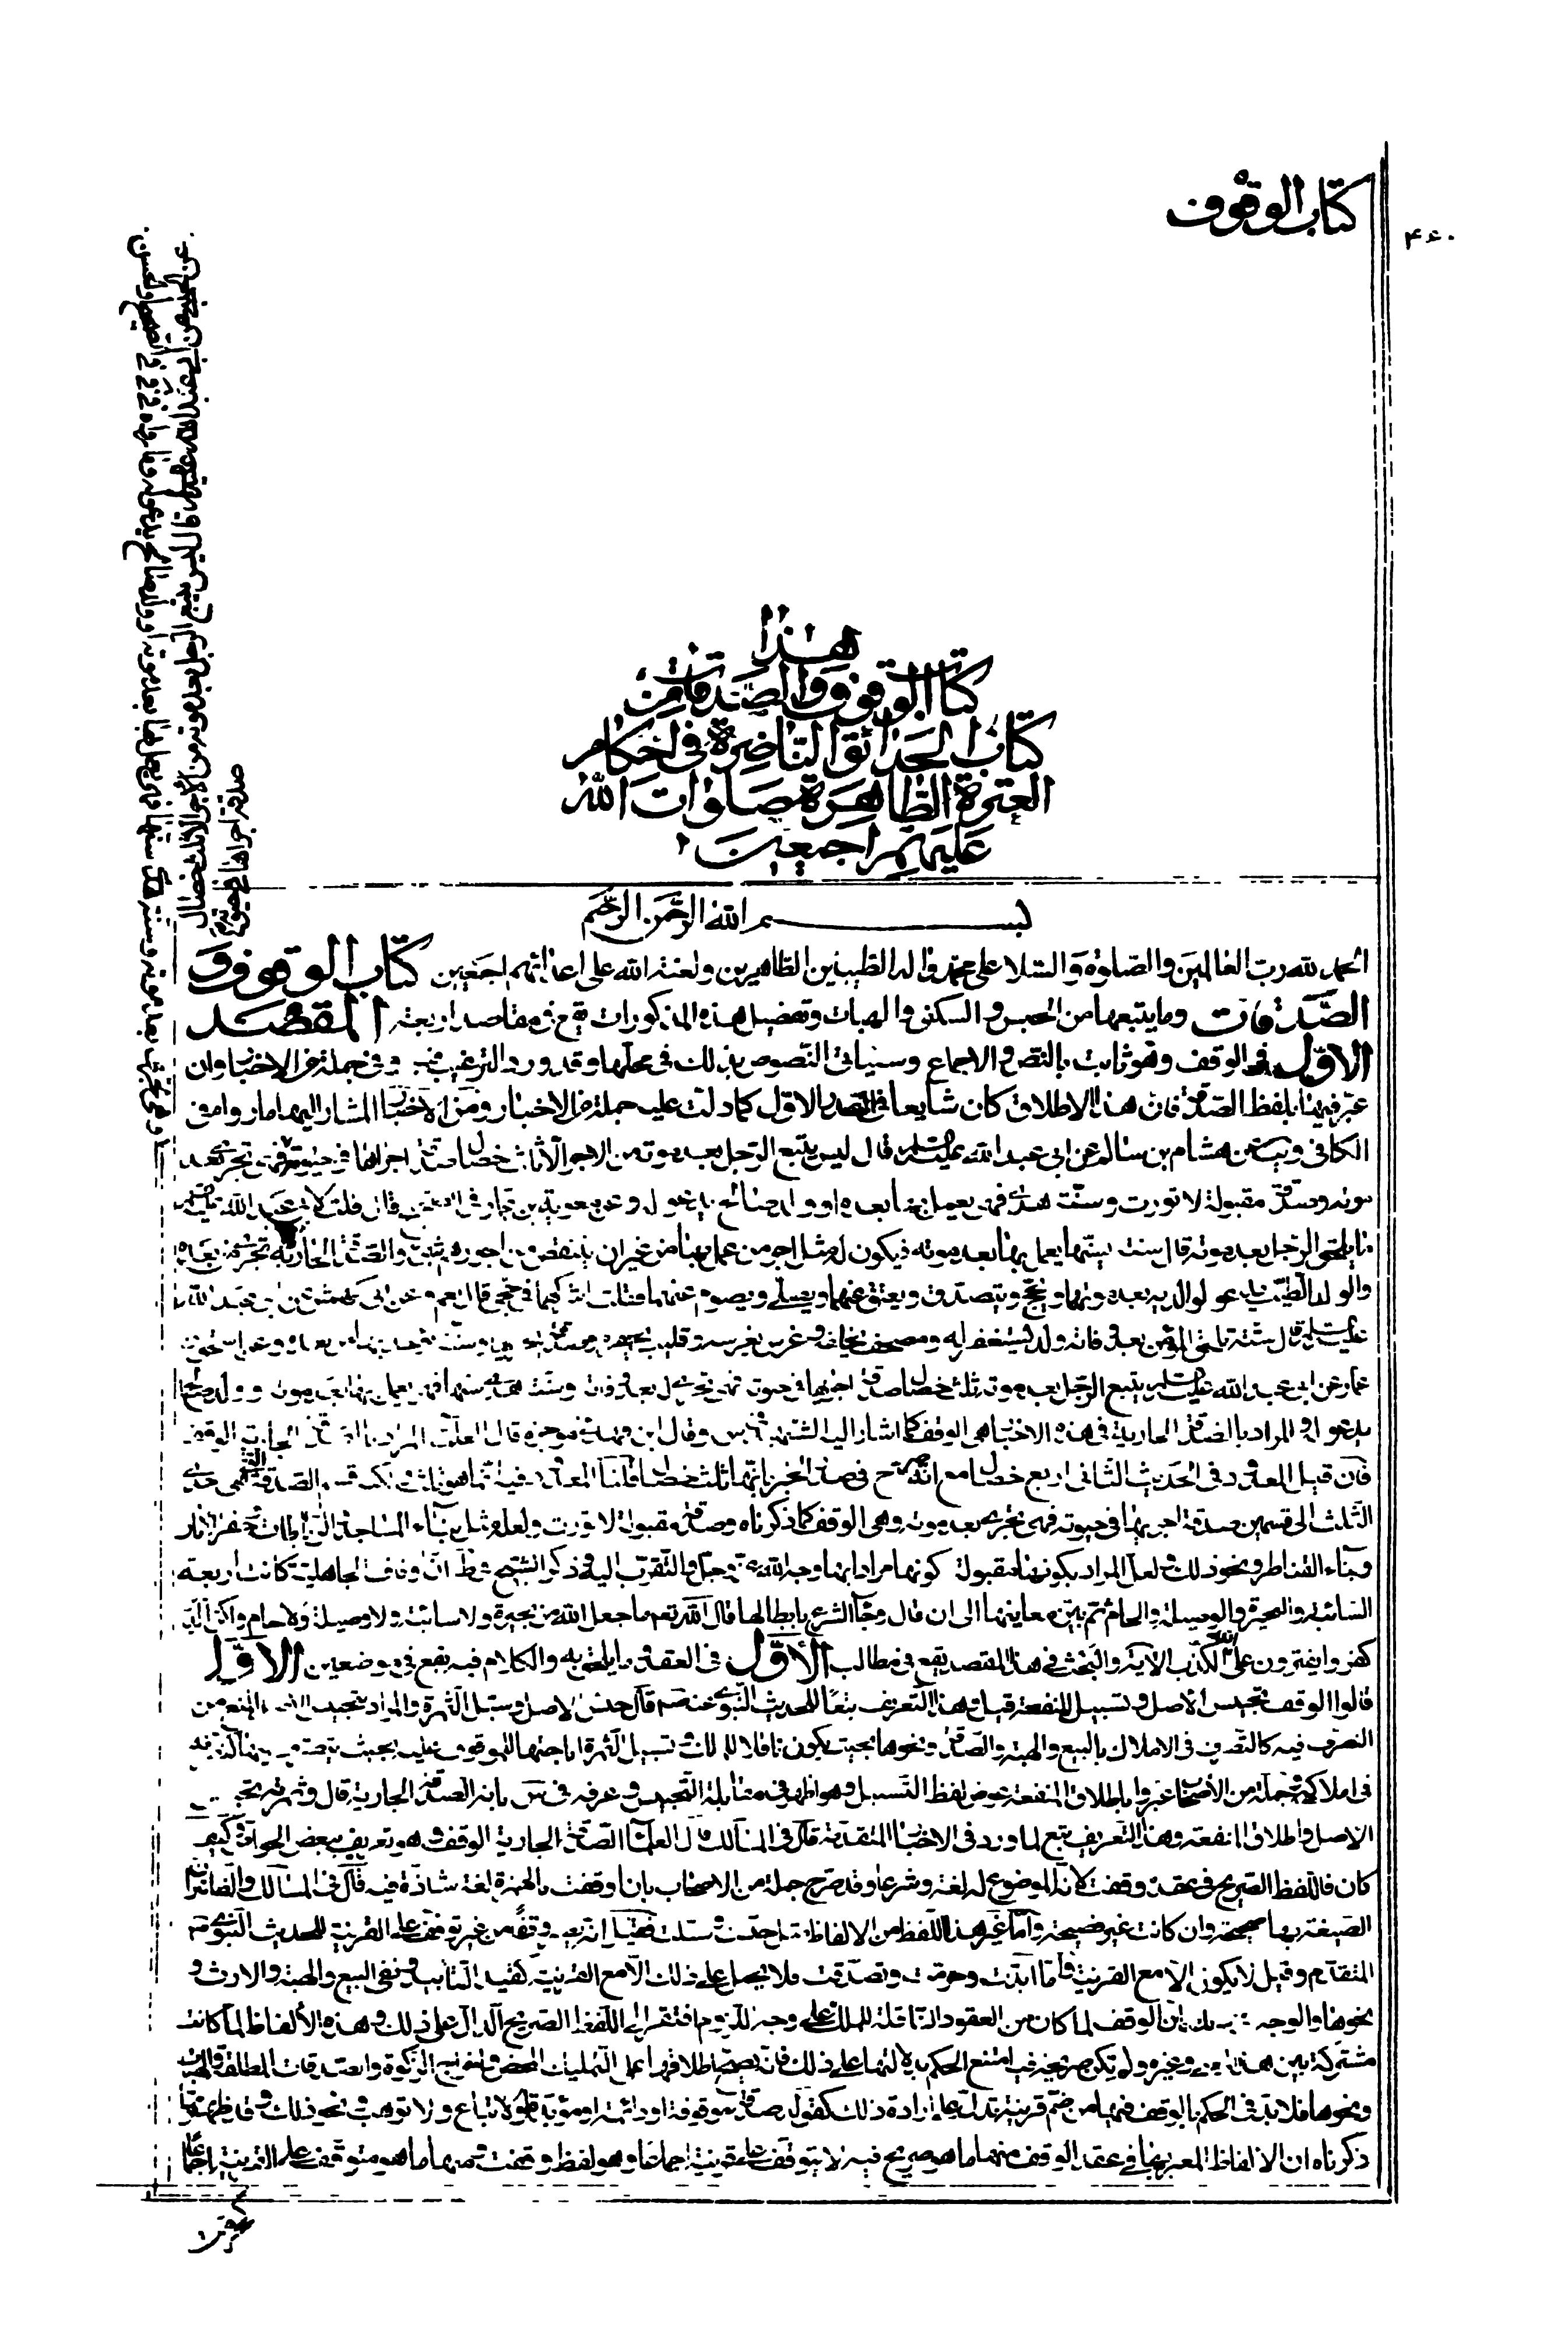 كتاب الوقوف
۴۶۰
هذا
كتاب الوقوف والصدقات من
كتاب الحدائق الناضرة في احكام
العترة الطاهرة صلوات الله
عليهم اجمعين
بسم الله الرحمن الرحيم
الحمد لله رب العالمين والصلوة والسلام على محمد واله الطيبين الطاهرين ولعنة الله على اعدائهم اجمعين كتاب الوقوف و
الصدقات وما يتبعها من الحبس والسكنى والهبات وتفصيل هذه المذكورات يقع في مقاصد اربعة المقصد
الاول في الوقف وهو ثابت بالنص والاجماع وسياتي النصوص بذلك في محلها وقد ورد الترغيب فيه في جملة من الاخبار وان
عبر فيها بلفظ الصدقة فان هذا الاطلاق كان شايعا في الصدر الاول كما دلت عليه جملة من الاخبار ومن الاخبار المشار اليها ما رواه في
الكافي ويب عن هشام بن سالم عن ابي عبد الله عليه السلم قال ليس يتبع الرجل بعد موته من الاجر الا ثلث خصال صدقة اجراها في حيوته فهي تجري بعد
موته وصدقة مقبولة لا تورث وسنة هدى فهي يعمل بها بعده او ولد صالح يدعو له وعن معوية بن عمار في قال قلت لابي عبد الله عليه السلم
ما يلحق الرجل بعد موته قال سنة يسنها يعمل بها بعد موته فيكون له مثل اجر من عمل بها من غير ان ينتقص من اجورهم شيئ والصدقة الجارية تجري من بعده
والولد الطيب يدعو لوالديه بعد موتهما ويحج ويتصدق ويعتق عنهما ويصلي ويصوم عنهما فقلت اشركهما في حجي قال نعم وعن ابي كهمش عن ابي عبد الله
عليه السلم قال ستة تلحق المؤمن بعد وفاته ولد يستغفر له ومصحف يخلفه وغرس يغرسه وقليب يحفره وصدقة يجريها وسنة يؤخذ بها من بعده وعن اسحق بن
عمار عن ابي عبد الله عليه السلم يتبع الرجل بعد موته ثلث خصال صدقة اجراها في حيوته فهي تجري له بعد وفاته وسنة هدى سنها فهي يعمل بها بعد موته وولد صالح
يدعو له والمراد بالصدقة الجارية في هذه الاخبار هي الوقف كما اشار اليه الشهيد في س وقال ابن فهد في موجزه قال العلماء المراد بالصدقة الجارية الوقف
فان قيل المعدود في الحديث الثاني اربع خصال مع انه صرح في صدر الخبر بانها ثلث خصال قلنا المعدود فيه انما هو ثلث قسم الصدقة التي هي احدى
الثلث الى قسمين صدقة اجريها في حيوته فهي تجري بعد موته وهي الوقف كما ذكرناه وصدقة مقبولة لا تورث ولعله مثل بناء المساجد والرباطات وحفر الابار
وبناء القناطر ونحو ذلك ولعل المراد بكونها مقبولة كونها مرادا بها وجه الله عز وجل والتقرب اليه وذكر الشيخ في ط ان اوقاف الجاهلية كانت اربعة
السائبة والبحيرة والوصيلة والحام ثم بين معاينها الى ان قال وجاء الشرع بابطالها قال الله تعم ما جعل الله من بحيرة ولا سائبة ولا وصيلة ولا حام ولكن الذين
كفروا يفترون على الله الكذب الاية والبحث في هذا المقصد يقع في مطالب الاول في العقد وما يلحق به والكلام فيه يقع في موضعين الاول
قالوا الوقف تحبيس الاصل وتسبيل المنفعة قيل وهذا التعريف تبعا للحديث النبوي عنه صم قال حبس الاصل وسبل الثمرة والمراد بتحبيس الاصل المنع من
التصرف فيه كالتصرف في الاملاك بالبيع والهبة والصدقة ونحوها بحيث يكون ناقلا للملك وتسبيل الثمرة اباحتها للموقوف عليه بحيث يتصرف فيها كتصرفه
في املاكه وجملة من الأصحاب عبروا باطلاق المنفعة عوض لفظ التسبيل وهو اظهر في مقابلة التحبيس وعرفه في س بانه الصدقة الجارية قال وثمرته تحبيس
الاصل واطلاق المنفعة وهذا التعريف تبع لما ورد في الاخبار المتقدمة قال في المسالك قال العلماء الصدقة الجارية الوقف وهو تعريف ببعض الخواص وكيف
كان فاللفظ الصريح في عقده وقفت لانه الموضوع له لغة وشرعا وقد صرح جملة من الاصحاب بان اوقفت بالهمزة لغة شاذة فيه قال في المسالك
الصيغة بها صحيحة وان كانت غير فصيحة واما غير هذا اللفظ من الالفاظ مثل حبست وسبلت فقيل انه يصير وقفا من غير توقف على القرينة للحديث النبوي صم
المتقدم وقيل لا يكون الا مع القرينة واما ابدت وحرمت وتصدقت فلا يحمل على ذلك الا مع القرينة كقيد التابيد ونفي البيع والهبة والارث و
نحوها والوجه في ذلك ان الوقف لما كان من العقود الناقلة للملك على وجه اللزوم افتقر الى اللفظ الصريح الدال على ذلك وهذه الالفاظ لما كانت
مشتركة بين هذا المعنى وغيره ولم تكن صريحة فيه امتنع الحكم بدلالتها على ذلك فانه يصح اطلاقها على التمليك المحض واخراج الزكوة والصدقات المطلقة والهبات
ونحوها فلا بد في الحكم بالوقف فيها من ضم قرينة تدل على ارادة ذلك كقوله صدقة موقوفة او دائمة او مؤبدة او لا تباع ولا توهب ونحو ذلك وقد ظهر مما
ذكرناه ان الالفاظ المعبر بها في عقد الوقف منها ما هو صريح فيه لا يتوقف على قرينة اجماعا وهو لفظ وقفت ومنها ما هو متوقف على القرينة اجماعا
عن الحلبي عن ابي عبد الله عليه السلم قال ليس يتبع الرجل بعد موته من الأجر الا ثلث خصال
صدقة اجراها في حيوته